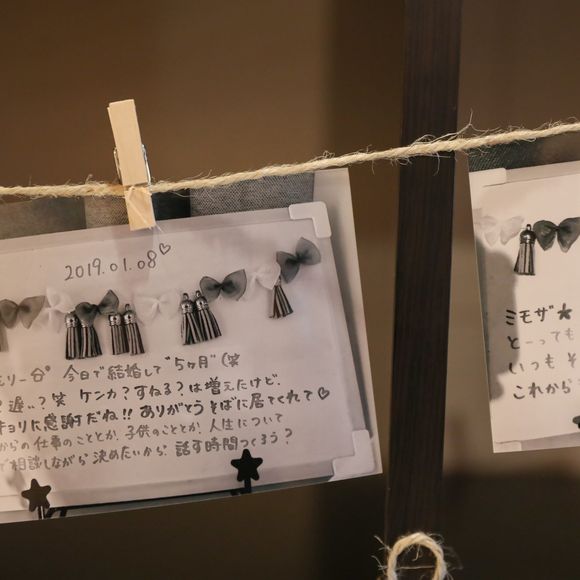 2019.01.08♡
モリー谷° 今日で結婚して"5ヶ月"(笑
? 遅い?笑 ケンカ?すねる?は増えたけど.
キョリに感謝だね!! ありがとう そばに居てくれて♡
からの仕事のこととか、子供のこととか、人生について
で相談しながら 決めたいから 話す時間つくろう?
ミモザ★
とーっても
いつも そ
これから